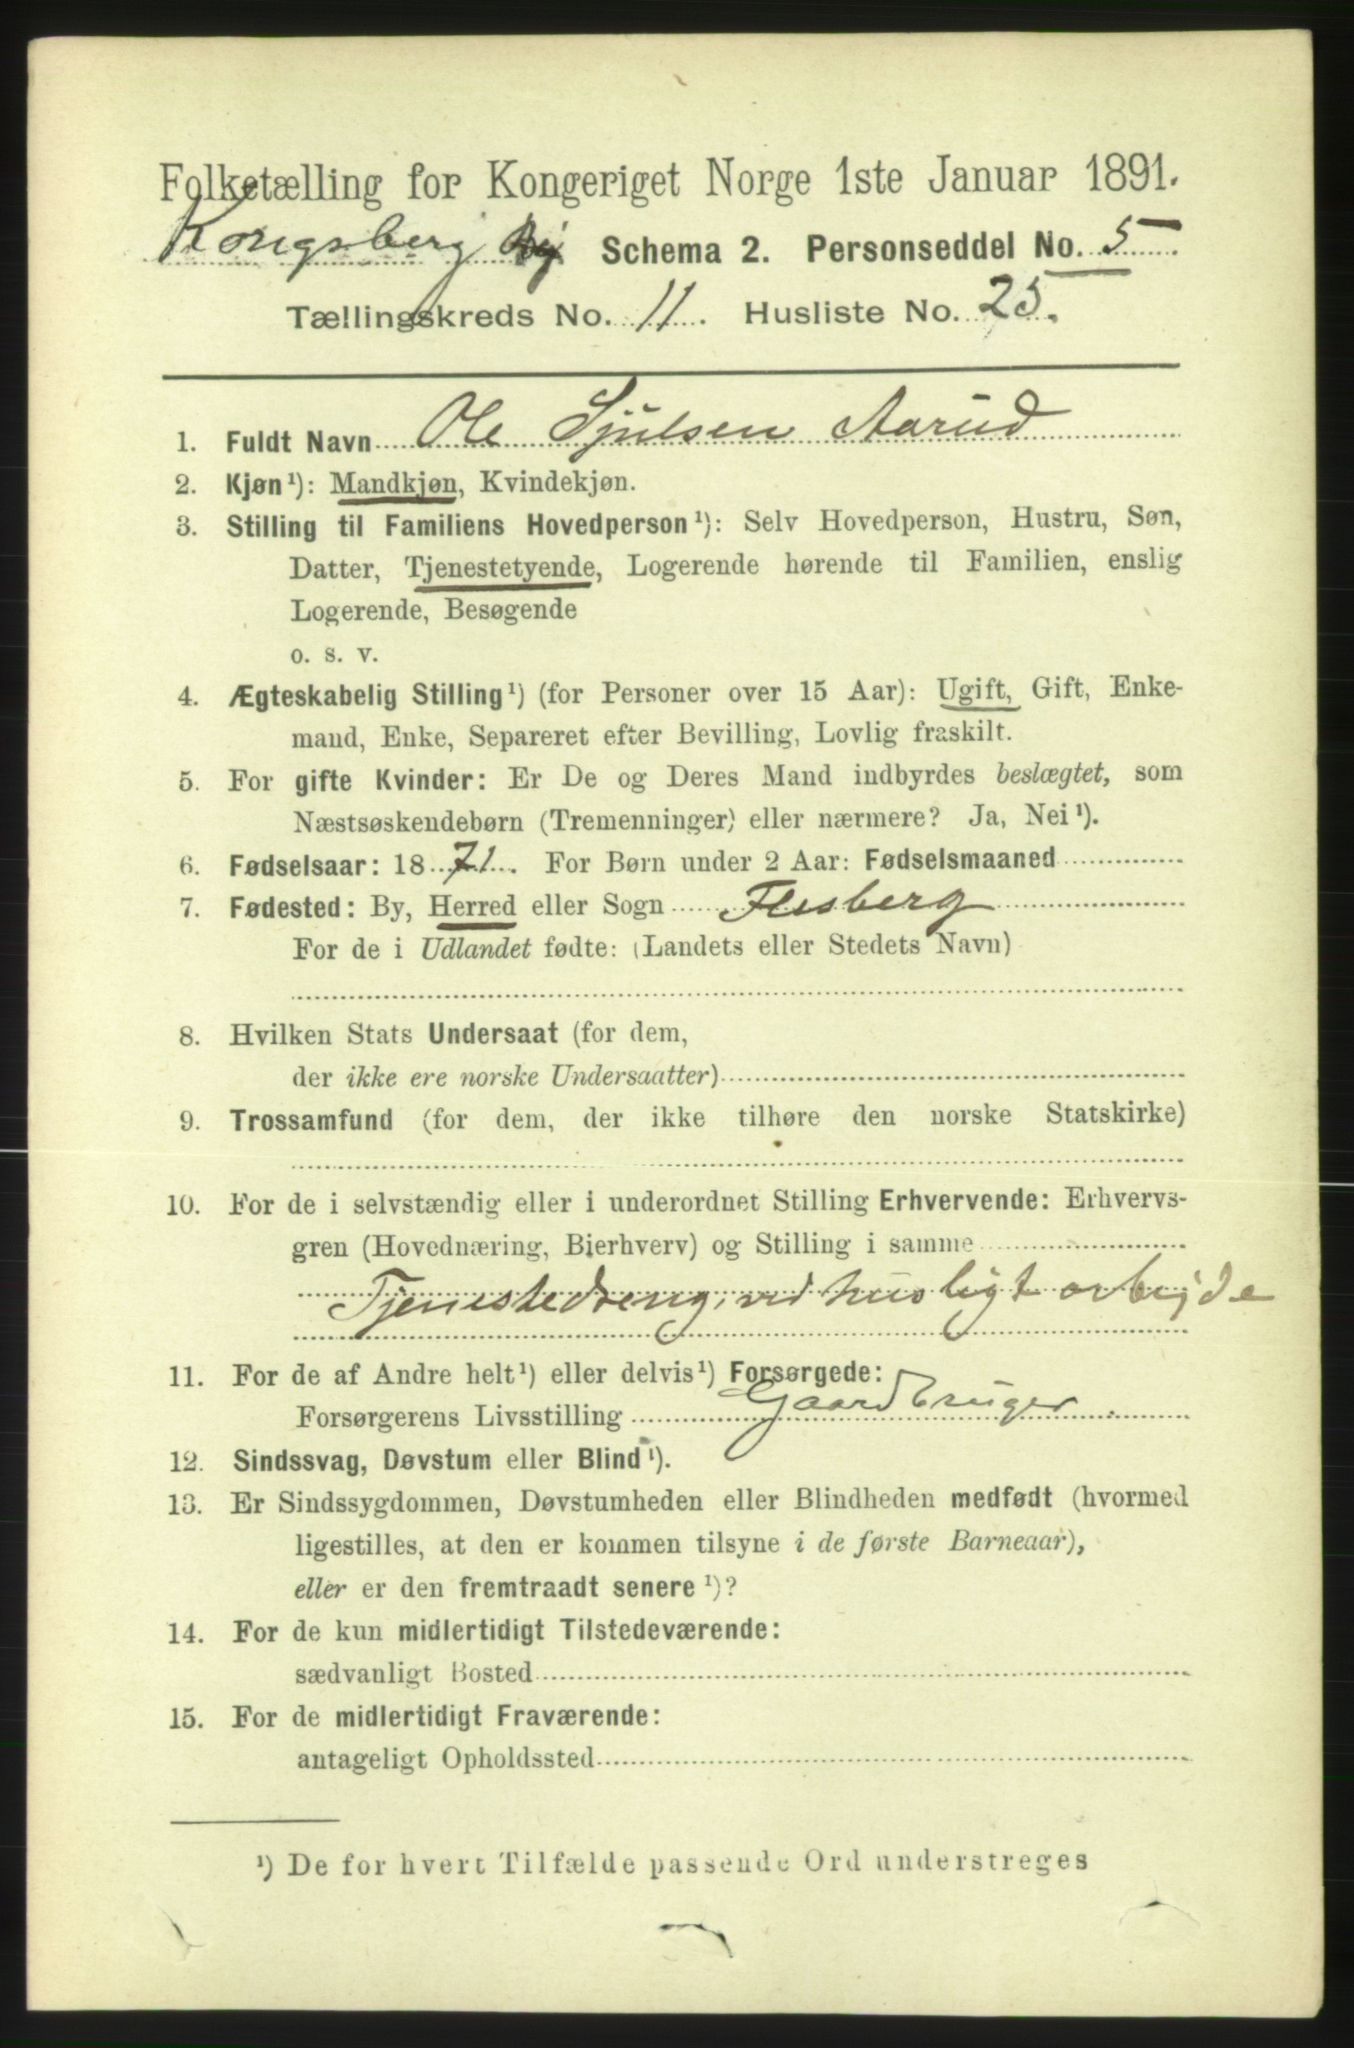 Folketælling for Kongeriget Norge 1ste Januar 1891.
Kongsberg By Schema 2. Personseddel No. 5
Tællingskreds No. 11. Husliste No. 25.
1. Fuldt Navn Ole Sjulsen Aarud
2. Kjøn¹): Mandkjøn, Kvindekjøn.
3. Stilling til Familiens Hovedperson¹): Selv Hovedperson, Hustru, Søn,
Datter, Tjenestetyende, Logerende hørende til Familien, enslig
Logerende, Besøgende
o. s. v.
4. Ægteskabelig Stilling¹) (for Personer over 15 Aar): Ugift, Gift, Enke-
mand, Enke, Separeret efter Bevilling, Lovlig fraskilt.
5. For gifte Kvinder: Er De og Deres Mand indbyrdes beslægtet, som
Næstsøskendebørn (Tremenninger) eller nærmere? Ja, Nei¹).
6. Fødselsaar: 1871. For Børn under 2 Aar: Fødselsmaaned
7. Fødested: By, Herred eller Sogn Flesberg
For de i Udlandet fødte: (Landets eller Stedets Navn)
8. Hvilken Stats Undersaat (for dem,
der ikke ere norske Undersaatter)
9. Trossamfund (for dem, der ikke tilhøre den norske Statskirke)
10. For de i selvstændig eller i underordnet Stilling Erhvervende: Erhvervs-
gren (Hovednæring, Bierhverv) og Stilling i samme
Tjenestedreng, ved husligt arbejde
11. For de af Andre helt¹) eller delvis¹) Forsørgede:
Forsørgerens Livsstilling Gaardbruger
12. Sindssvag, Døvstum eller Blind¹).
13. Er Sindssygdommen, Døvstumheden eller Blindheden medfødt (hvormed
ligestilles, at den er kommen tilsyne i de første Barneaar),
eller er den fremtraadt senere¹)?
14. For de kun midlertidigt Tilstedeværende:
sædvanligt Bosted
15. For de midlertidigt Fraværende:
antageligt Opholdssted
¹) De for hvert Tilfælde passende Ord understreges